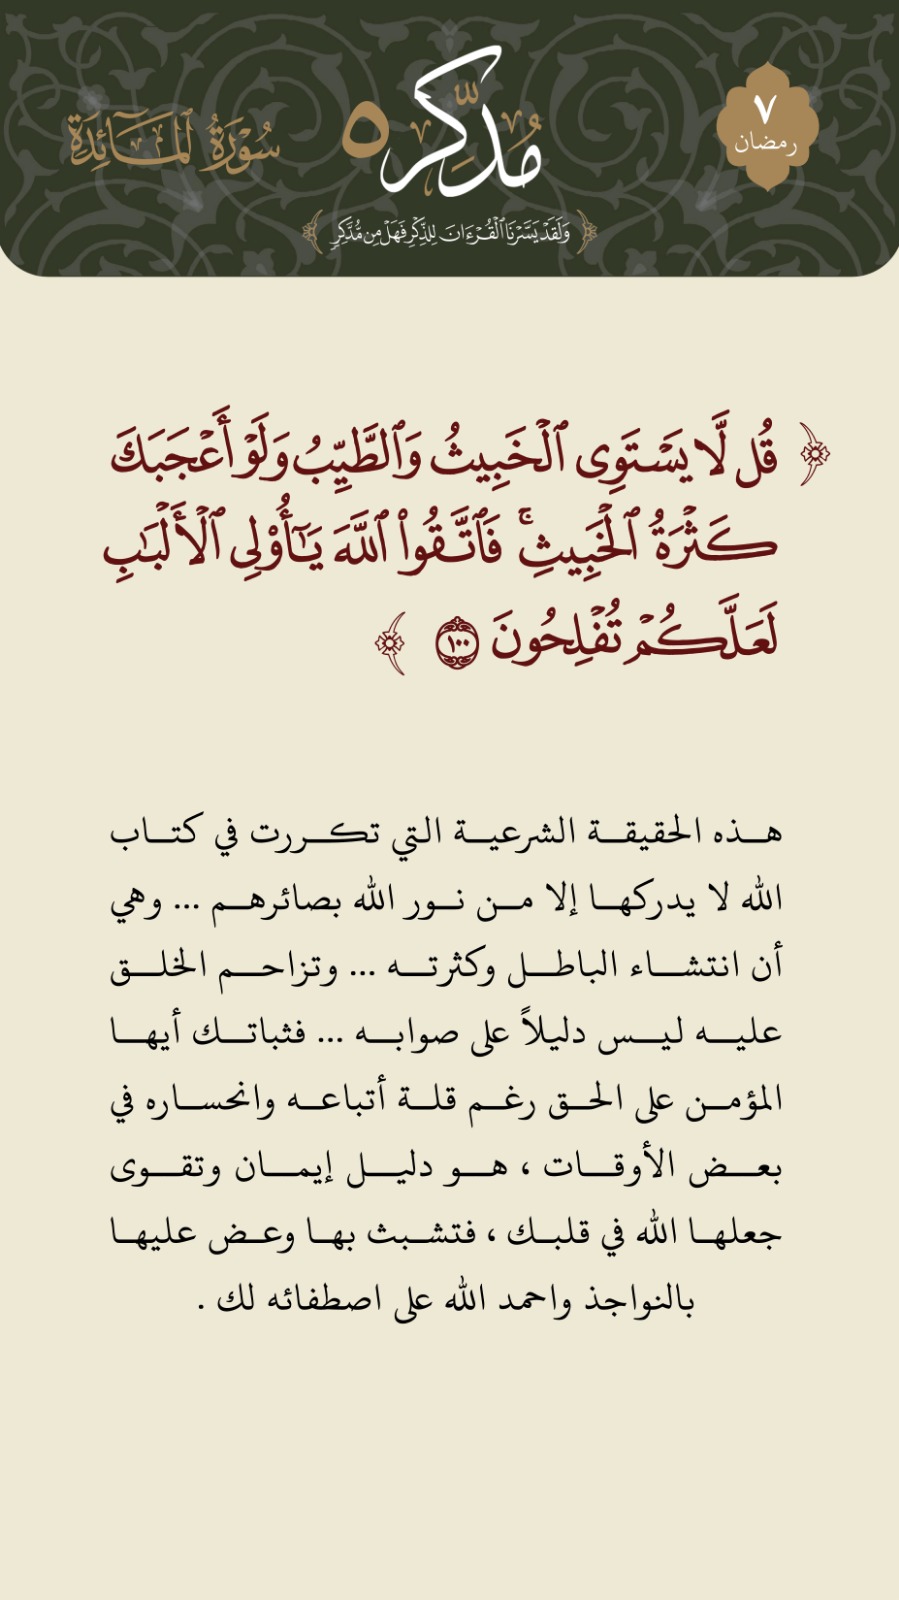 ٧
رمضان
مُدَّكِر ٥
سُورَةُ المَائِدَةِ
وَلَقَدْ يَسَّرْنَا ٱلْقُرْءَانَ لِلذِّكْرِ فَهَلْ مِن مُّدَّكِرٍ
﴿ قُل لَّا يَسْتَوِى ٱلْخَبِيثُ وَٱلطَّيِّبُ وَلَوْ أَعْجَبَكَ
كَثْرَةُ ٱلْخَبِيثِ ۚ فَٱتَّقُوا۟ ٱللَّهَ يَـٰٓأُو۟لِى ٱلْأَلْبَـٰبِ
لَعَلَّكُمْ تُفْلِحُونَ ١٠٠ ﴾
هذه الحقيقة الشرعية التي تكررت في كتاب
الله لا يدركها إلا من نور الله بصائرهم ... وهي
أن انتشاء الباطل وكثرته ... وتزاحم الخلق
عليه ليس دليلاً على صوابه ... فثباتك أيها
المؤمن على الحق رغم قلة أتباعه وانحساره في
بعض الأوقات ، هو دليل إيمان وتقوى
جعلها الله في قلبك ، فتشبث بها وعض عليها
بالنواجذ واحمد الله على اصطفائه لك .